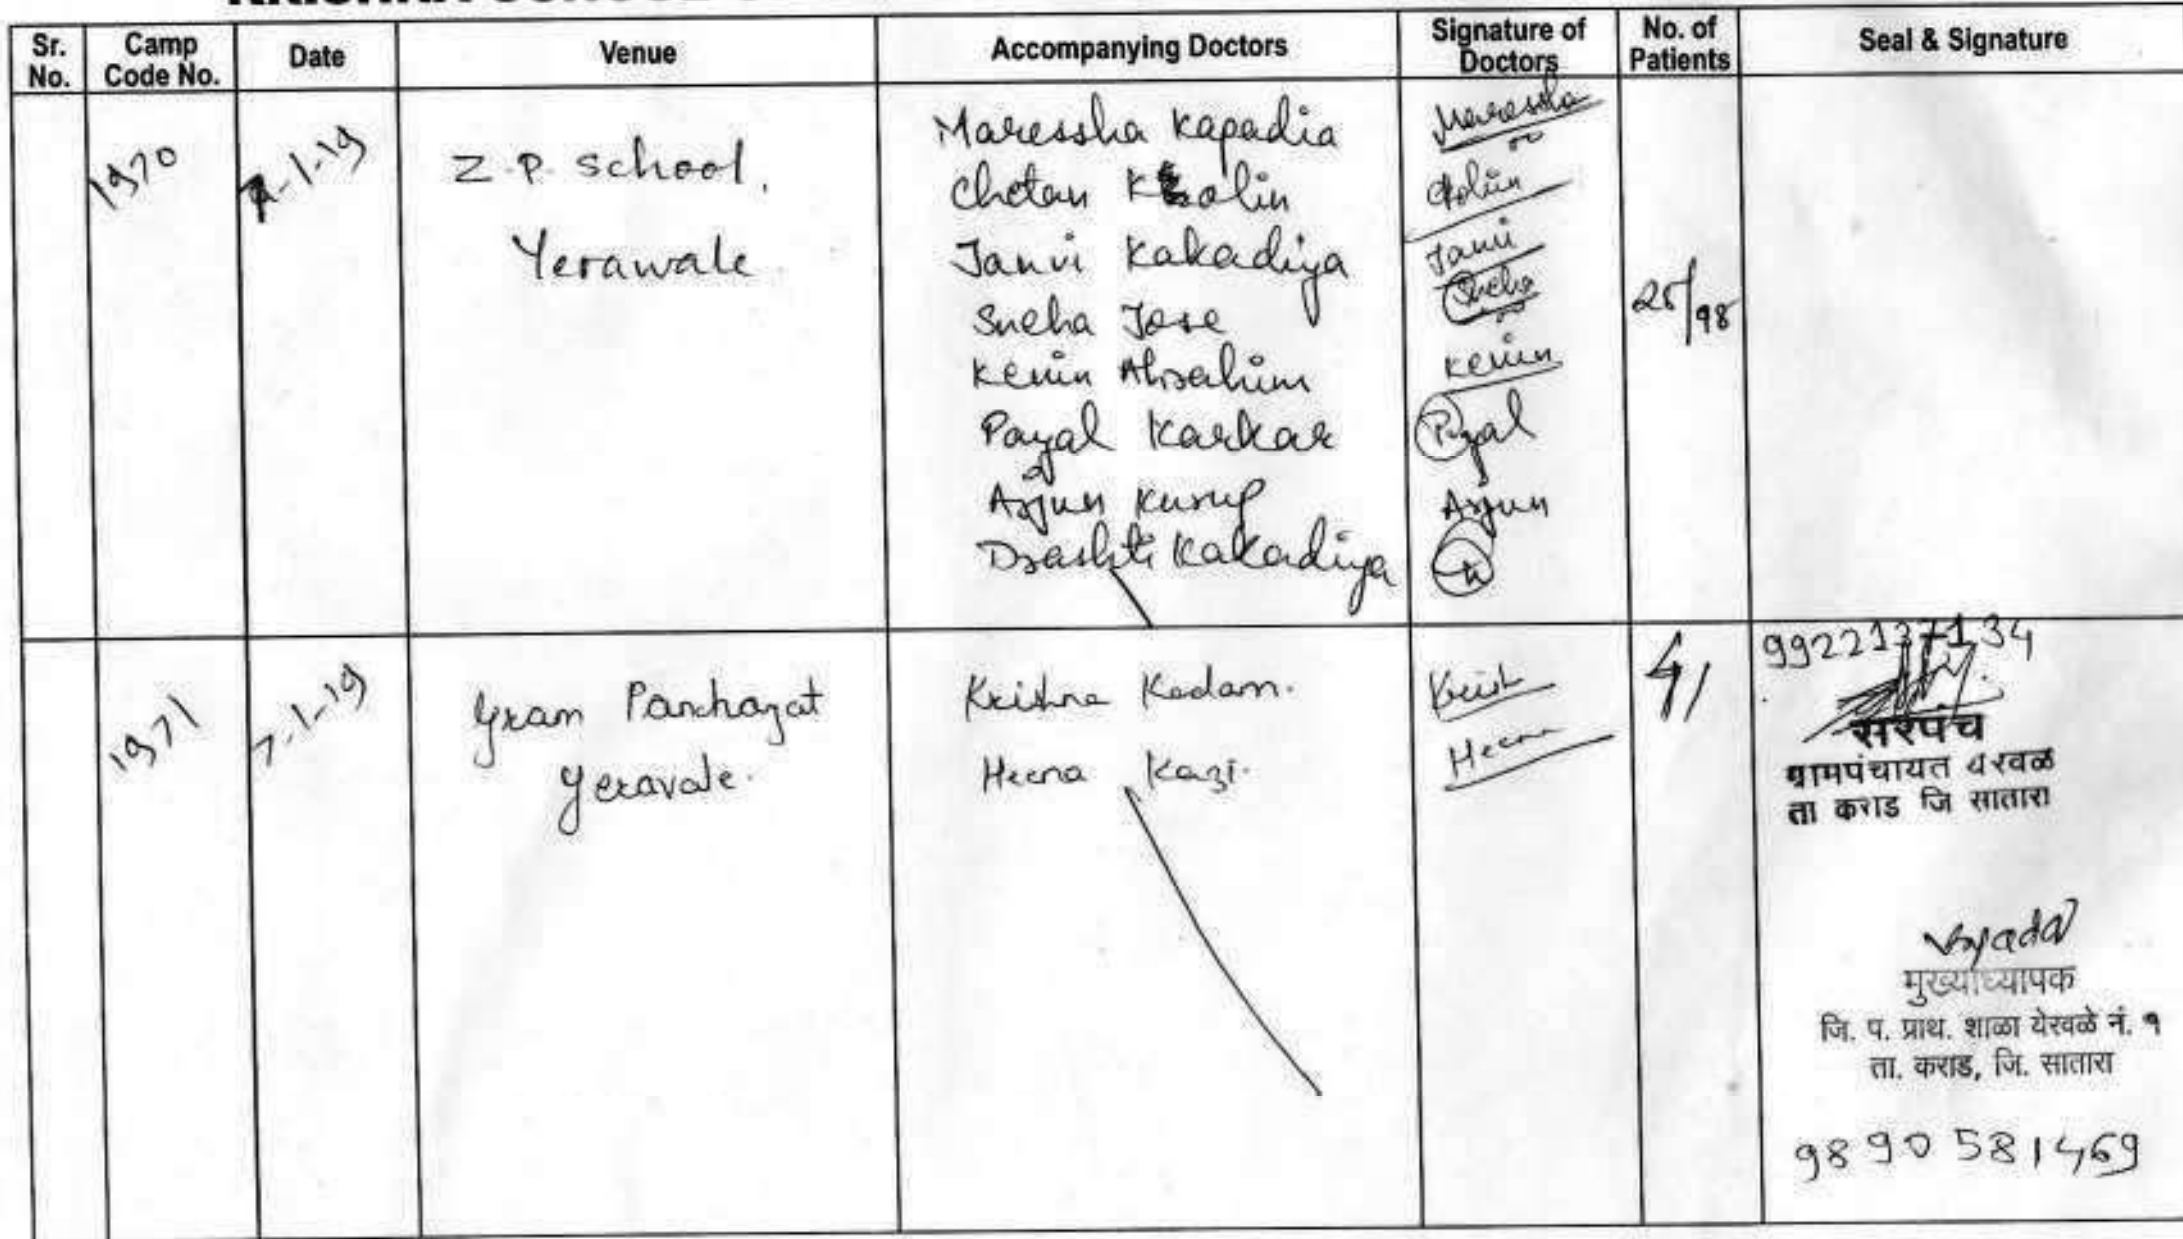 Sr. No.
Camp Code No.
Date
Venue
Accompanying Doctors
Signature of Doctors
No. of Patients
Seal & Signature
1970
7-1-19
Z.P. School,
Yerawale
Maressha Kapadia
Chetan Kolin
Janvi Kakadiya
Sneha Jose
Kevin Abrahim
Payal Karkar
Arjun Kurup
Drashti Kakadiya
Maressha
Janvi
Sneha
Kevin
Payal
Arjun
/98
1971
7-1-19
Gram Panchayat
Yeravale.
Krishna Kadam.
Heena Kazi.
Krish
Heena
41
9922137134
सरपंच
ग्रामपंचायत येरवळे
ता कराड जि सातारा
मुख्याध्यापक
जि. प. प्राथ. शाळा येरवळे नं. १
ता. कराड, जि. सातारा
9890581469